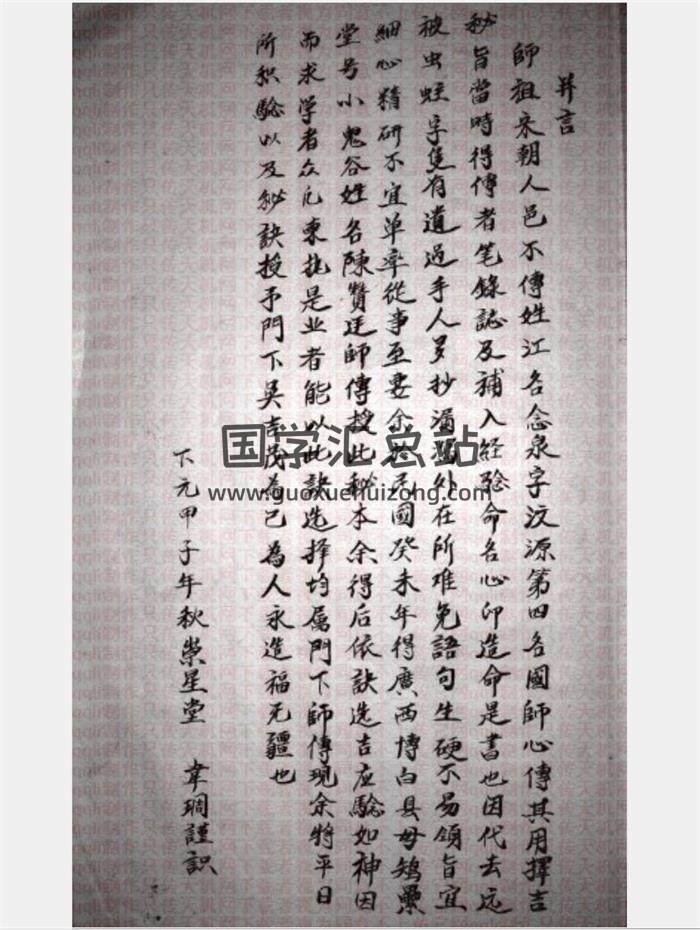 并言
師祖宋朝人邑不傳姓江名念泉字汶源第四名國師心傳其用擇吉
秘旨當時得傳者笔錄誌及補入經驗命名心印造命是書也因代去远
被虫蛀字隻有遺過手人多抄漏 外在所难免語句生硬不易領旨宜
細心精研不宜单率從事至要余於民國癸未年得廣西博白县母鸡
堂号小鬼谷姓名陳贊廷師傳授此秘本余得后依訣选吉应驗如神因
而求学者众凡東 是业者能以此訣选择均属門下師傳現余将平日
所积驗以及秘訣授予門下吴吉茂為己為人永造福无疆也
下元甲子年秋崇星堂 韋琱謹識
国学汇总站
www.guoxuehuizong.com